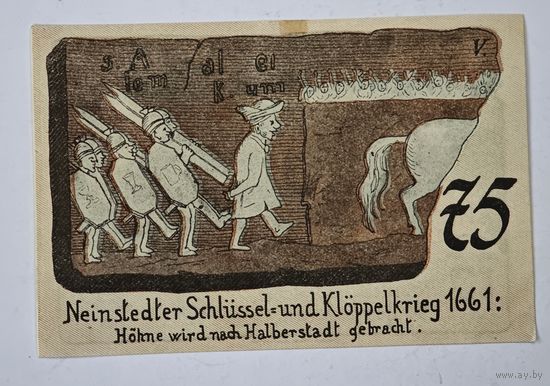 s. A al ei
lem K. um
V.
75
Neinstedter Schlüssel= und Klöppelkrieg 1661:
Höhne wird nach Halberstadt gebracht.
www.ay.by